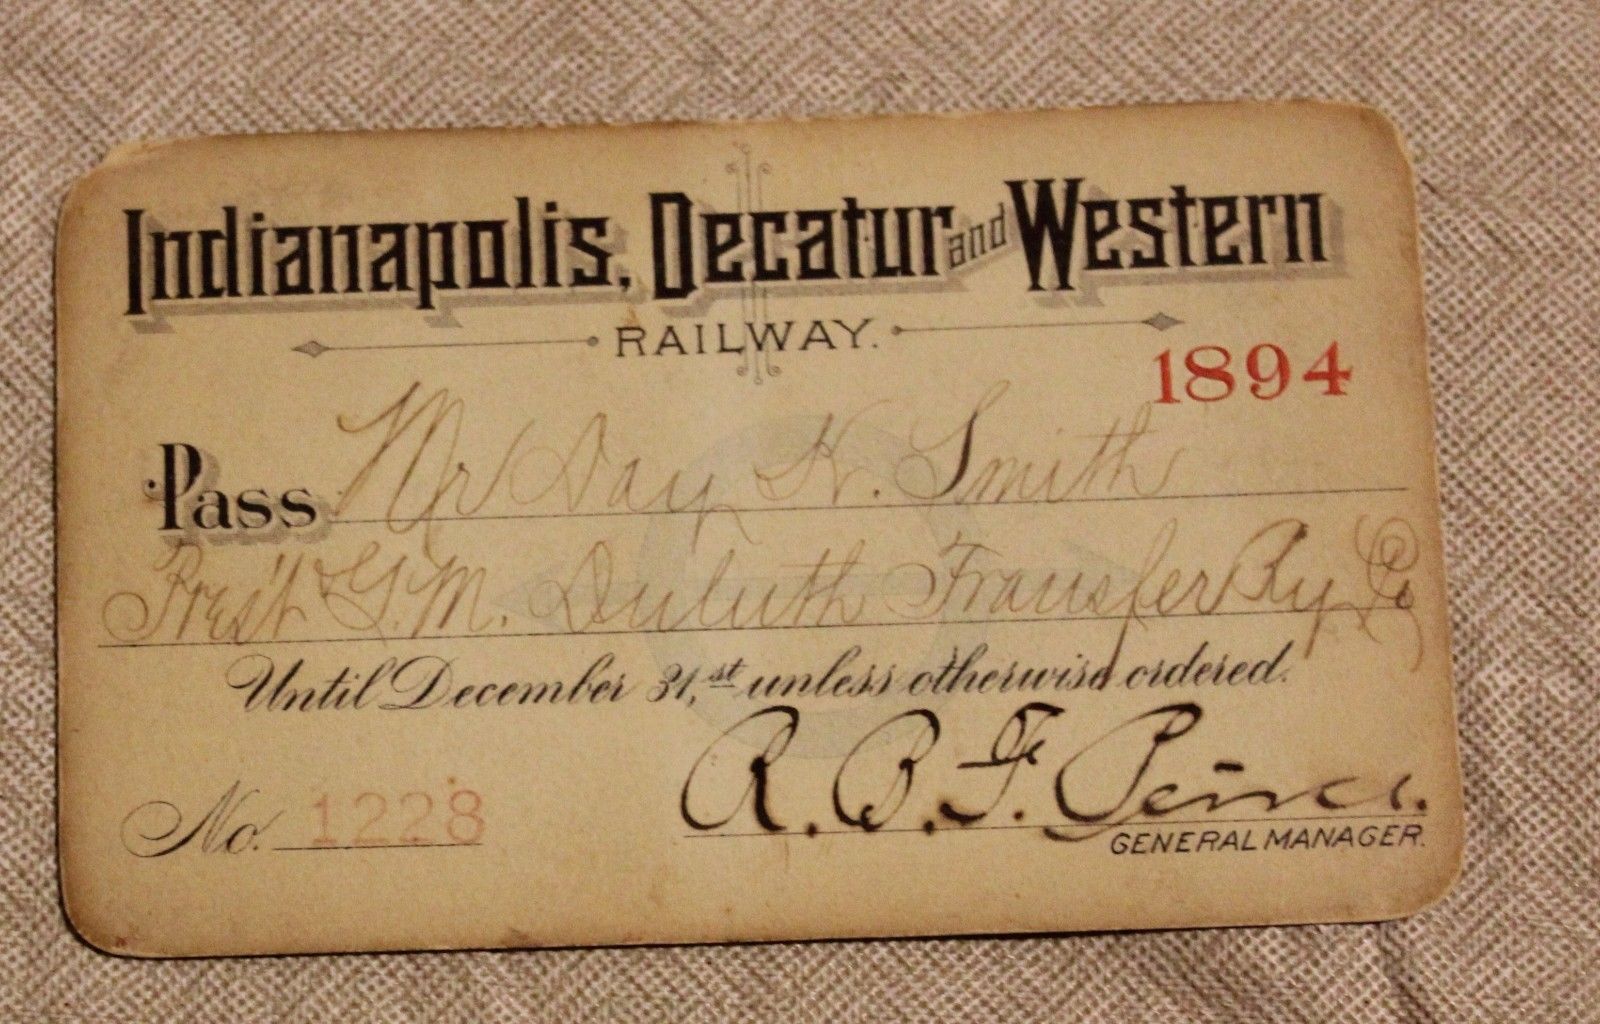 Indianapolis, Decatur and Western
RAILWAY.
1894
Pass Mr Day K. Smith
Prest & G.M. Duluth Transfer Ry Co
Until December 31,st unless otherwise ordered.
R. B. F. Peirce.
No. 1228
GENERAL MANAGER.